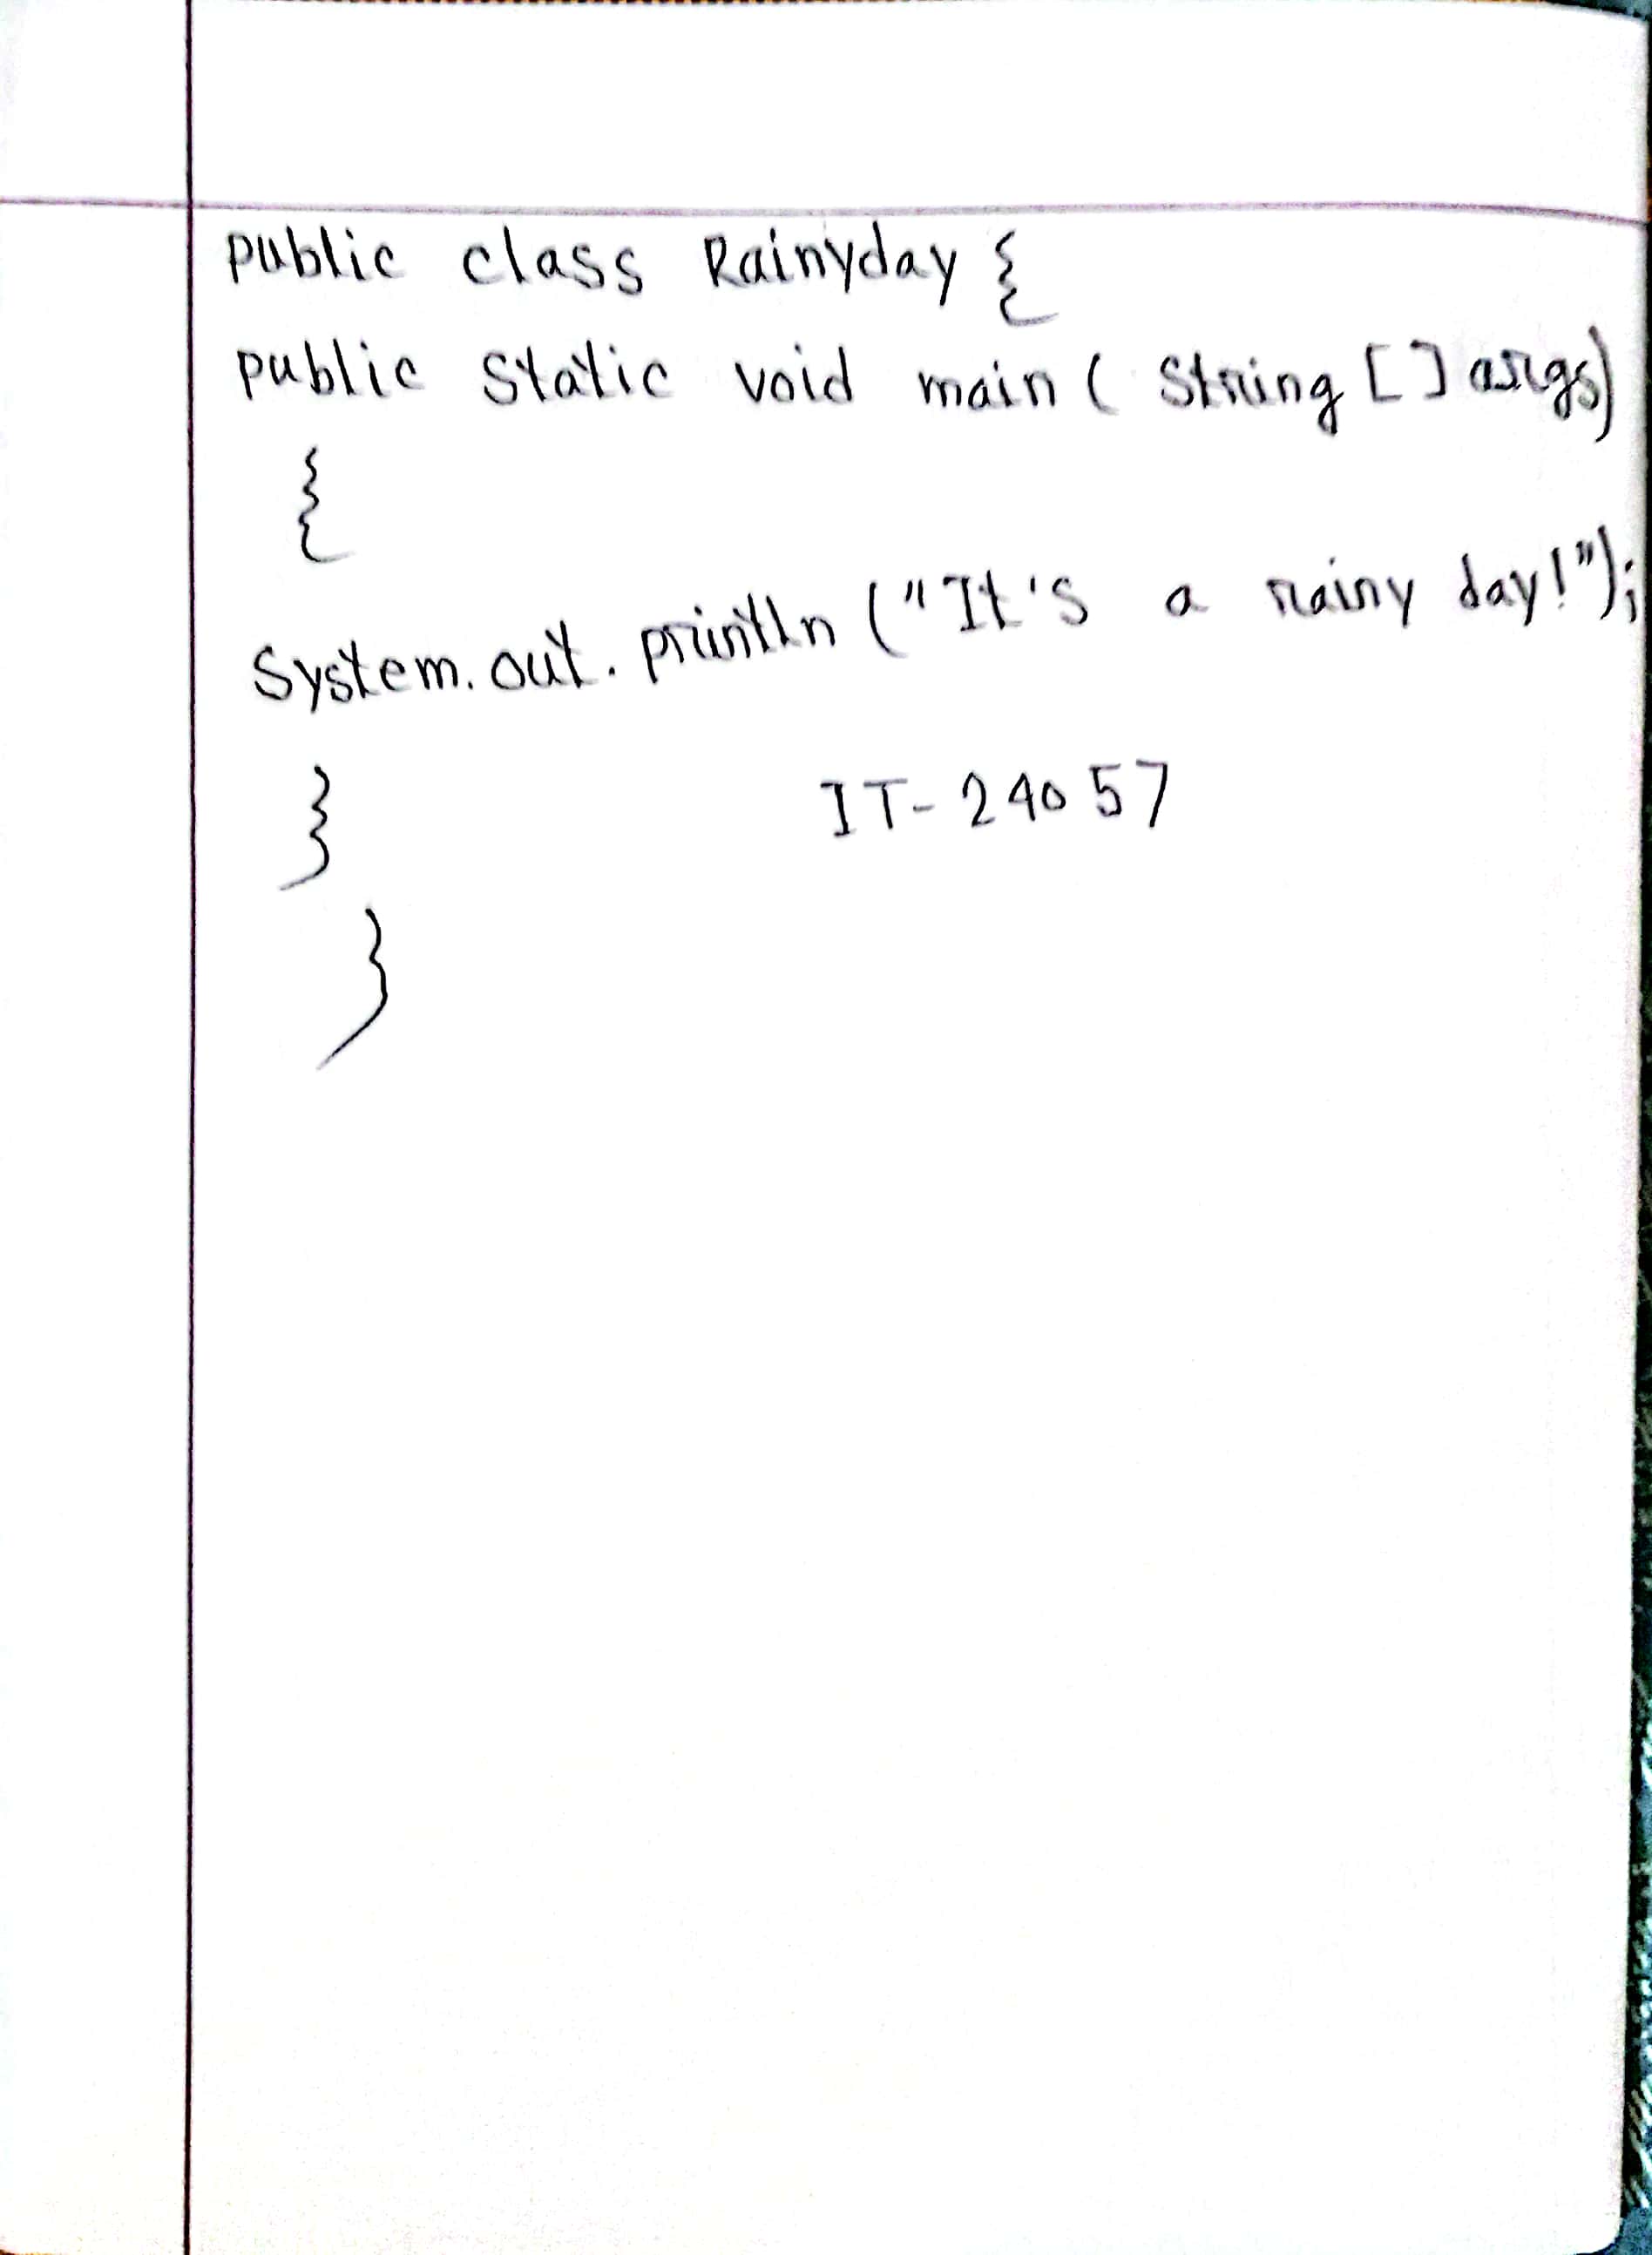 public class Rainyday {
public static void main ( String [ ] args)
{
System.out.println ("It's a rainy day!");
} IT-24057
}